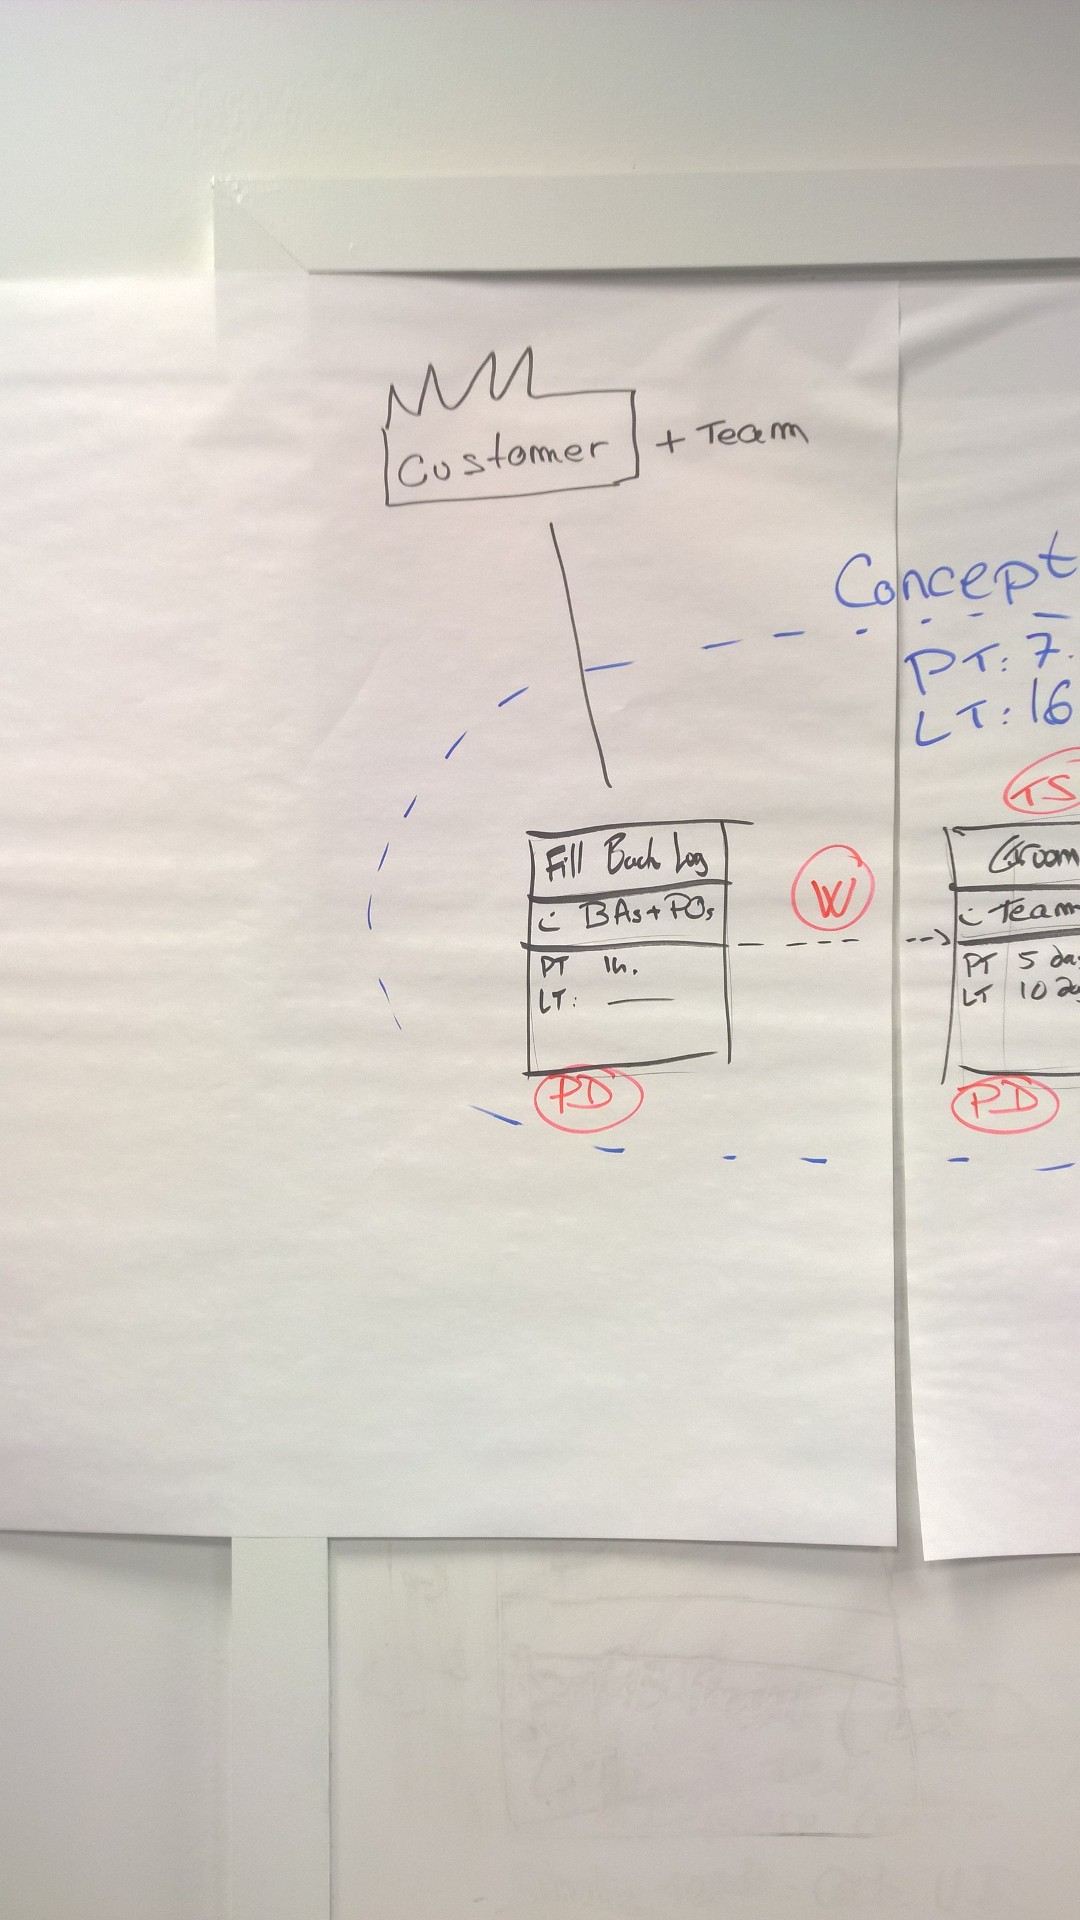 Customer + Team
Concept
PT: 7.
LT: 16
TS
Fill Back Log
BAs + POs
PT 1h.
LT:
PD
W
Groom
Team
PT 5 da
LT 10 da
PD